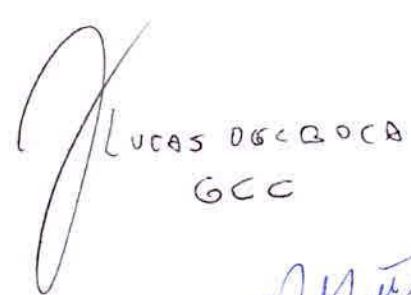 LUCAS DELBOCA
GCC